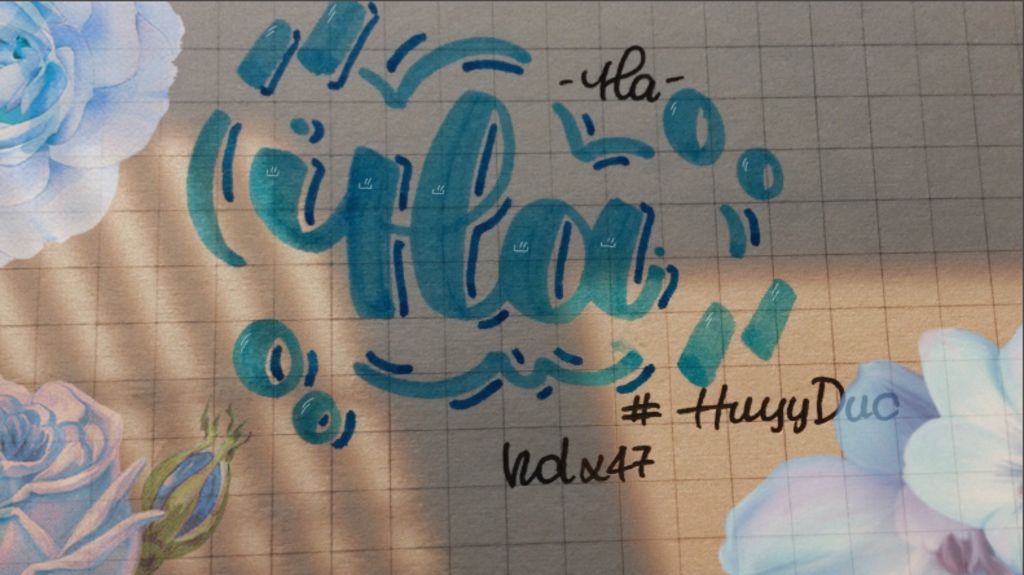 -Ha-
Ha
# HuyyDuc
hdx47